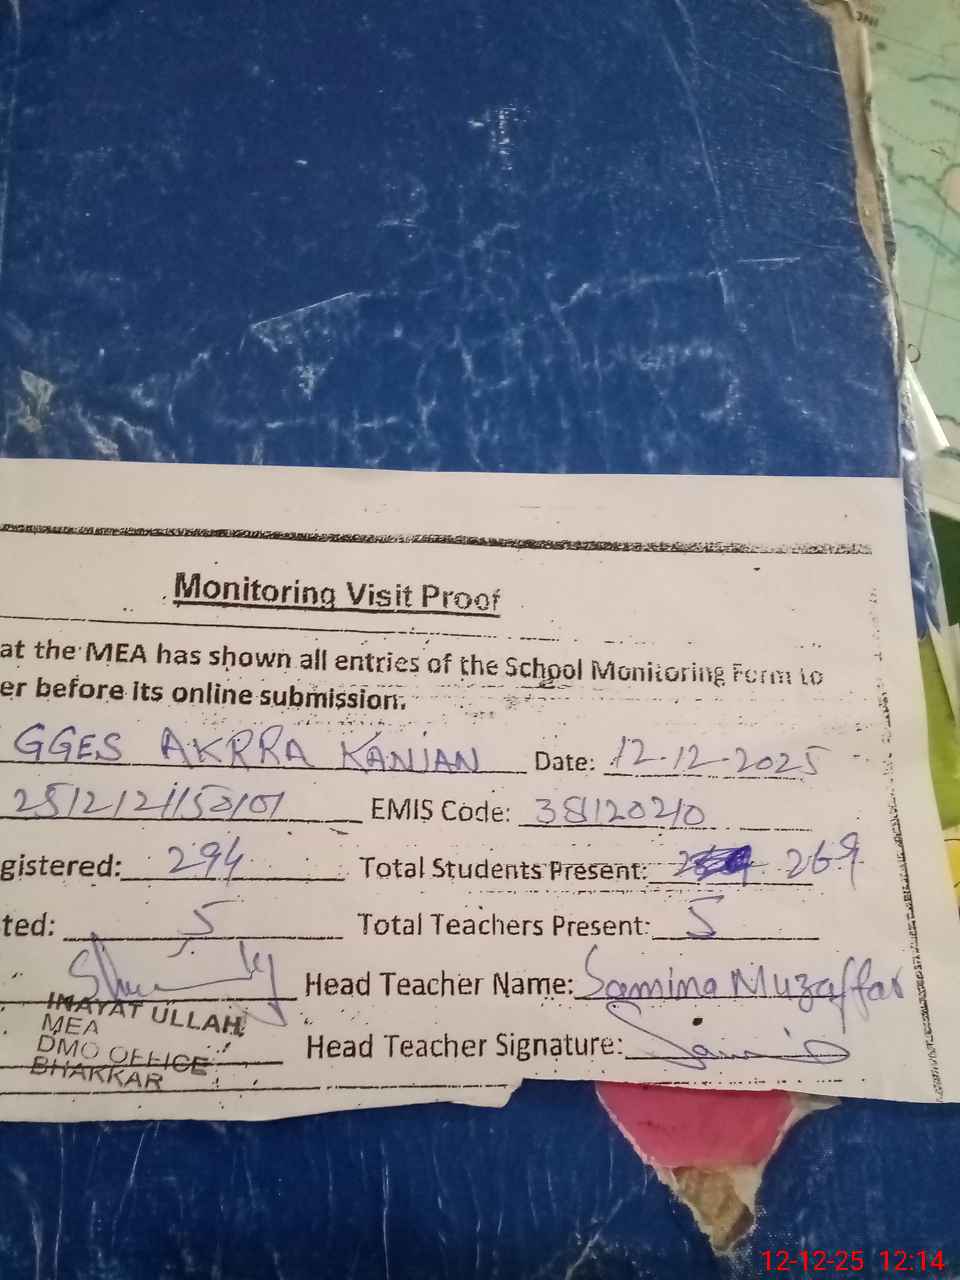 Monitoring Visit Proof
at the MEA has shown all entries of the School Monitoring Form to
er before its online submission.
GGES AKRRA KANJAN Date: 12-12-2025
EMIS Code: 38120210
gistered: 294 Total Students Present: 269
ted: 5 Total Teachers Present: 5
Head Teacher Name: Samina Muzaffar
INAYAT ULLAH
MEA
DMO OFFICE
BHAKKAR
Head Teacher Signature:
12-12-25 12:14